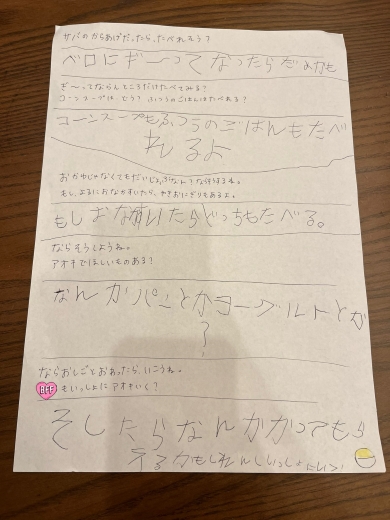 サバのからあげだったら、たべれそう？
ベロにギーってなったらだめかも
ぎ〜ってならんところだけたべてみる？
コーンスープは、どう？ふつうのごはんはたべれる？
コーンスープもふつうのごはんもたべ
れるよ
おかゆじゃなくてもだいじょぶなん？
もし、よるにおなかすいたら、やきおにぎりもあるよ。
もしおなかすいたらどっちもたべる。
ならそうしようね。
アオキでほしいものある？
なんかパンとかヨーグルトとか
？
ならおしごとおわったら、いこうね。
BFF もいっしょにアオキいく？
そしたらなんかかってもら
えるかもしれんしいっしょにいく